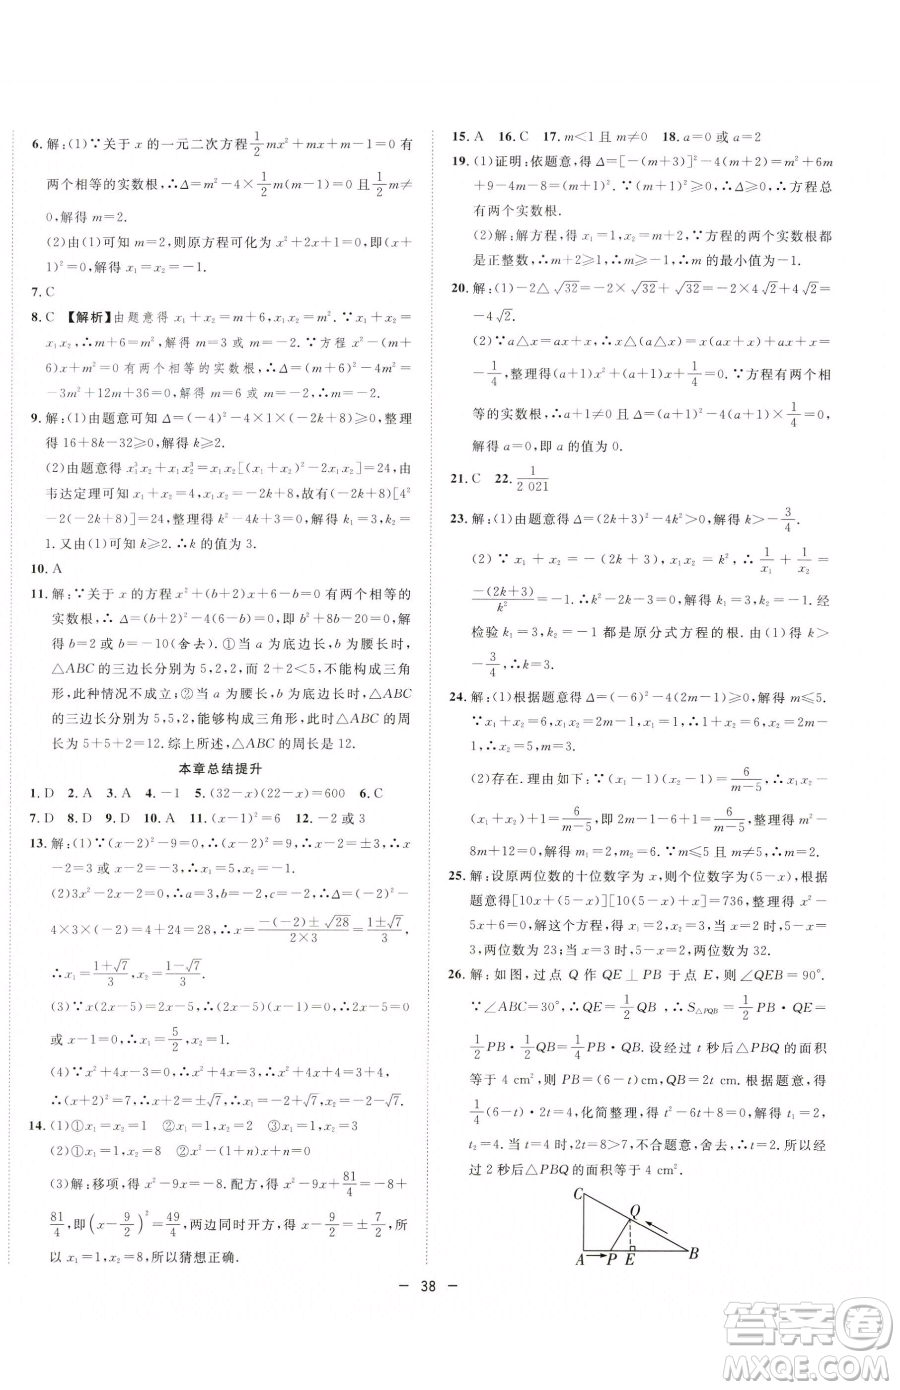 6. 解:(1)∵关于 x 的一元二次方程 1/2 mx²+mx+m-1=0 有
两个相等的实数根,∴Δ=m²-4×1/2 m(m-1)=0 且 1/2 m≠
0,解得 m=2.
(2)由(1)可知 m=2,则原方程可化为 x²+2x+1=0,即(x+
1)²=0,解得 x₁=x₂=-1.
7. C
8. C 【解析】由题意得 x₁+x₂=m+6,x₁x₂=m². ∵x₁+x₂=
x₁x₂,∴m+6=m²,解得 m=3 或 m=-2. ∵方程 x²-(m+
6)x+m²=0 有两个相等的实数根,∴Δ=(m+6)²-4m²=
-3m²+12m+36=0,解得 m=6 或 m=-2,∴m=-2.
9. 解:(1)由题意可知 Δ=(-4)²-4×1×(-2k+8)≥0,整理
得 16+8k-32≥0,解得 k≥2.
(2)由题意得 x₁³x₂+x₁x₂³=x₁x₂[(x₁+x₂)²-2x₁x₂]=24,由
韦达定理可知 x₁+x₂=4,x₁x₂=-2k+8,故有(-2k+8)[4²
-2(-2k+8)]=24,整理得 k²-4k+3=0,解得 k₁=3,k₂=
1. 又由(1)可知 k≥2,∴k 的值为 3.
10. A
11. 解:∵关于 x 的方程 x²+(b+2)x+6-b=0 有两个相等的
实数根,∴Δ=(b+2)²-4(6-b)=0,即 b²+8b-20=0,解
得 b=2 或 b=-10(舍去). ①当 a 为底边长,b 为腰长时,
△ABC 的三边长分别为 5,2,2,∵2+2<5,不能构成三角
形,此种情况不成立;②当 a 为腰长,b 为底边长时,△ABC
的三边长分别为 5,5,2,能够构成三角形,此时△ABC 的周
长为 5+5+2=12. 综上所述,△ABC 的周长是 12.
本章总结提升
1. D 2. A 3. A 4. -1 5. (32-x)(22-x)=600 6. C
7. D 8. D 9. D 10. A 11. (x-1)²=6 12. -2 或 3
13. 解:(1)∵(x-2)²-9=0,∴(x-2)²=9,∴x-2=±3,∴x
-2=3 或 x-2=-3,∴x₁=5,x₂=-1.
(2)3x²-2x-2=0,∴a=3,b=-2,c=-2,∴Δ=(-2)²-
4×3×(-2)=4+24=28,∴x=(-(-2)±√28)/(2×3)=(1±√7)/3,
∴x₁=(1+√7)/3,x₂=(1-√7)/3.
(3)∵x(2x-5)=2x-5,∴(2x-5)(x-1)=0,∴2x-5=0
或 x-1=0,∴x₁=5/2,x₂=1.
(4)∵x²+4x-3=0,∴x²+4x=3,∴x²+4x+4=3+4,
∴(x+2)²=7,∴x+2=±√7,∴x₁=-2+√7,x₂=-2-√7.
14. (1)①x₁=x₂=1 ②x₁=1,x₂=2 ③x₁=1,x₂=3
(2)①x₁=1,x₂=8 ②x²-(1+n)x+n=0
(3)解:移项,得 x²-9x=-8. 配方,得 x²-9x+81/4=-8+
81/4,即(x-9/2)²=49/4,两边同时开方,得 x-9/2=±7/2,所
以 x₁=1,x₂=8,所以猜想正确.
15. A 16. C 17. m<1 且 m≠0 18. a=0 或 a=2
19. (1)证明:依题意,得 Δ=[-(m+3)]²-4(m+2)=m²+6m
+9-4m-8=(m+1)². ∵(m+1)²≥0,∴Δ≥0,∴方程总
有两个实数根.
(2)解:解方程,得 x₁=1,x₂=m+2. ∵方程的两个实数根都
是正整数,∴m+2≥1,∴m≥-1,∴m 的最小值为-1.
20. 解:(1)-2△√32=-2×√32+√32=-2×4√2+4√2=
-4√2.
(2)∵a△x=ax+x,∴x△(a△x)=x△(ax+x)=x(ax+x)+ax+x=
-1/4,整理,得(a+1)x²+(a+1)x+1/4=0. ∵方程有两个相
等的实数根,∴a+1≠0 且 Δ=(a+1)²-4(a+1)×1/4=0,
解得 a=0,即 a 的值为 0.
21. C 22. 1/2 021
23. 解:(1)由题意得 Δ=(2k+3)²-4k²>0,解得 k>-3/4.
(2)∵x₁+x₂=-(2k+3),x₁x₂=k²,∴1/x₁+1/x₂=
-(2k+3)/k²=-1,即 k²-2k-3=0,解得 k₁=3,k₂=-1. 经
检验 k₁=3,k₂=-1 都是原分式方程的根. 由(1)得 k>
-3/4,∴k=3.
24. 解:(1)根据题意得 Δ=(-6)²-4(2m-1)≥0,解得 m≤5.
∵x₁+x₂=6,x₁x₂=2m-1,x₁=1,∴1+x₂=6,x₂=2m-
1,∴x₂=5,m=3.
(2)存在. 理由如下:∵(x₁-1)(x₂-1)=6/(m-5),∴x₁x₂-
(x₁+x₂)+1=6/(m-5),即 2m-1-6+1=6/(m-5),整理得 m²-
8m+12=0,解得 m₁=2,m₂=6. ∵m≤5 且 m≠5,∴m=2.
25. 解:设原两位数的十位数字为 x,则个位数字为(5-x),根据
题意得[10x+(5-x)][10(5-x)+x]=736,整理得 x²-
5x+6=0,解这个方程,得 x₁=2,x₂=3,当 x=2 时,5-x=
3,两位数为 23;当 x=3 时,5-x=2,两位数为 32.
26. 解:如图,过点 Q 作 QE⊥PB 于点 E,则∠QEB=90°.
∵∠ABC=30°,∴QE=1/2 QB,∴S△PQB=1/2 PB·QE=
1/2 PB·1/2 QB=1/4 PB·QB. 设经过 t 秒后△PBQ 的面积
等于 4 cm²,则 PB=(6-t)cm,QB=2t cm. 根据题意,得
1/4(6-t)·2t=4,化简整理,得 t²-6t+8=0,解得 t₁=2,
t₂=4. 当 t=4 时,2t=8,8>7,不合题意,舍去,∴t=2. 所以经
过 2 秒后△PBQ 的面积等于 4 cm².
C
Q
A P E B
— 38 —
答案圈
MXQE.COM